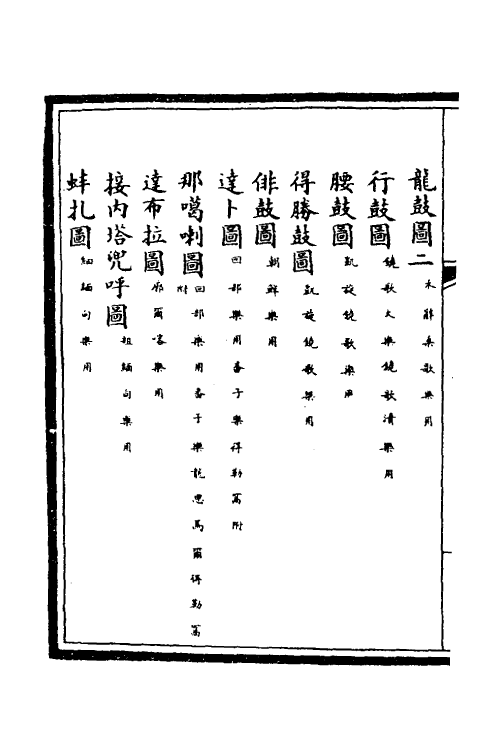 龍鼓圖二 禾辭桑歌樂用
行鼓圖 鐃歌大樂鐃歌清樂用
腰鼓圖 凱旋鐃歌樂用
得勝鼓圖 凱旋鐃歌樂用
俳鼓圖 朝鮮樂用
達卜圖 回部樂用番子樂得勒窩附
那噶喇圖 回部樂用番子樂龍思馬爾得勒窩附
達布拉圖 廓爾喀樂用
接內塔兜呼圖 粗緬甸樂用
蚌扎圖 細緬甸樂用